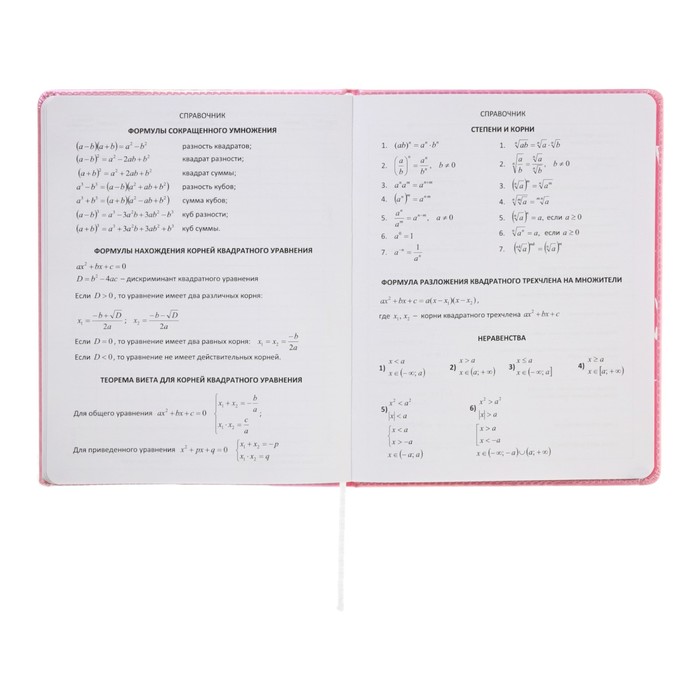 СПРАВОЧНИК
ФОРМУЛЫ СОКРАЩЕННОГО УМНОЖЕНИЯ
(a−b)(a+b) = a² − b² разность квадратов;
(a−b)² = a² − 2ab + b² квадрат разности;
(a+b)² = a² + 2ab + b² квадрат суммы;
a³ − b³ = (a−b)(a² + ab + b²) разность кубов;
a³ + b³ = (a+b)(a² − ab + b²) сумма кубов;
(a−b)³ = a³ − 3a²b + 3ab² − b³ куб разности;
(a+b)³ = a³ + 3a²b + 3ab² + b³ куб суммы.
ФОРМУЛЫ НАХОЖДЕНИЯ КОРНЕЙ КВАДРАТНОГО УРАВНЕНИЯ
ax² + bx + c = 0
D = b² − 4ac − дискриминант квадратного уравнения
Если D > 0, то уравнение имеет два различных корня:
x₁ = (−b + √D)/2a ; x₂ = (−b − √D)/2a
Если D = 0, то уравнение имеет два равных корня: x₁ = x₂ = −b/2a
Если D < 0, то уравнение не имеет действительных корней.
ТЕОРЕМА ВИЕТА ДЛЯ КОРНЕЙ КВАДРАТНОГО УРАВНЕНИЯ
Для общего уравнения ax² + bx + c = 0 { x₁ + x₂ = −b/a ; x₁ · x₂ = c/a
Для приведенного уравнения x² + px + q = 0 { x₁ + x₂ = −p x₁ · x₂ = q
СПРАВОЧНИК
СТЕПЕНИ И КОРНИ
1. (ab)ⁿ = aⁿ · bⁿ
2. (a/b)ⁿ = aⁿ/bⁿ, b ≠ 0
3. aⁿaᵐ = aⁿ⁺ᵐ
4. (aⁿ)ᵐ = aⁿᵐ
5. aⁿ/aᵐ = aⁿ⁻ᵐ, a ≠ 0
6. a⁰ = 1
7. a⁻ⁿ = 1/aⁿ
1. ⁿ√ab = ⁿ√a · ⁿ√b
2. ⁿ√(a/b) = ⁿ√a/ⁿ√b, b ≠ 0
3. (ⁿ√a)ᵐ = ⁿ√aᵐ
4. ᵐ√ⁿ√a = ᵐⁿ√a
5. (ⁿ√a)ⁿ = a, если a ≥ 0
6. ⁿ√aⁿ = a, если a ≥ 0
7.
ФОРМУЛА РАЗЛОЖЕНИЯ КВАДРАТНОГО ТРЕХЧЛЕНА НА МНОЖИТЕЛИ
ax² + bx + c = a(x − x₁)(x − x₂),
где x₁, x₂ − корни квадратного трехчлена ax² + bx + c
НЕРАВЕНСТВА
1) x < a x ∈ (−∞; a)
2) x > a x ∈ (a; +∞)
3) x ≤ a x ∈ (−∞; a]
4) x ≥ a x ∈ [a; +∞)
5) x² < a² |x| < a { x < a x > −a x ∈ (−a; a)
6) x² > a² |x| > a [ x > a x < −a x ∈ (−∞; −a) ∪ (a; +∞)